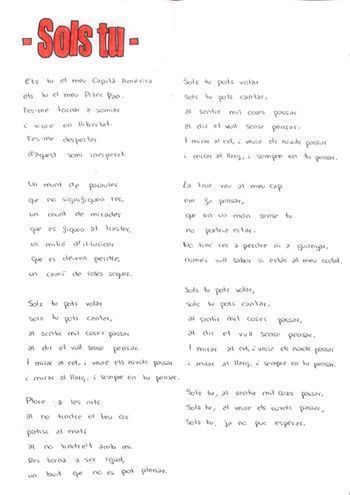 - Sols tu -
Ets tu el meu Capità Amèrica
ets tu el meu Piter Pan.
Fes-me tornar a somiar
i viure en llibertat.
Fes-me despertar
d'aquest somi inesperat.
Un munt de paraules
que no signifiquen res,
un munt de mirades
que es fiquen al traster,
un milió d'il·lusions
que es deuen perdre
un camí de roses seques.
Sols tu pots volar
sols tu pots cantar,
al sentir mil coses passar
al dir el vull sense pensar.
I mirar al cel, i veure els núvols passar
i mirar al llarg, i sempre en tu pensar.
Plore a les nits
al no tindre el teu cos
patisc al matí
al no tindre't amb mi.
Res torna a ser igual,
un buit que no es pot plenar.
Sols tu pots volar
sols tu pots cantar.
al sentir mil coses passar
al dir el vull sense pensar.
I mirar al cel, i veure els núvols passar
i mirar al llarg, i sempre en tu pensar.
La teua veu al meu cap
em fa pensar,
que en un món sense tu
no podria estar.
No tinc res a perdre ni a guanyar,
només vull saber si estàs al meu costat.
Sols tu pots volar,
sols tu pots cantar.
al sentir mil coses passar,
al dir el vull sense pensar.
I mirar al cel, i veure els núvols passar
i mirar al llarg, i sempre en tu pensar.
Sols tu, al sentir mil coses passar,
Sols tu, al veure els núvols passar,
Sols tu, ja no puc esperar.